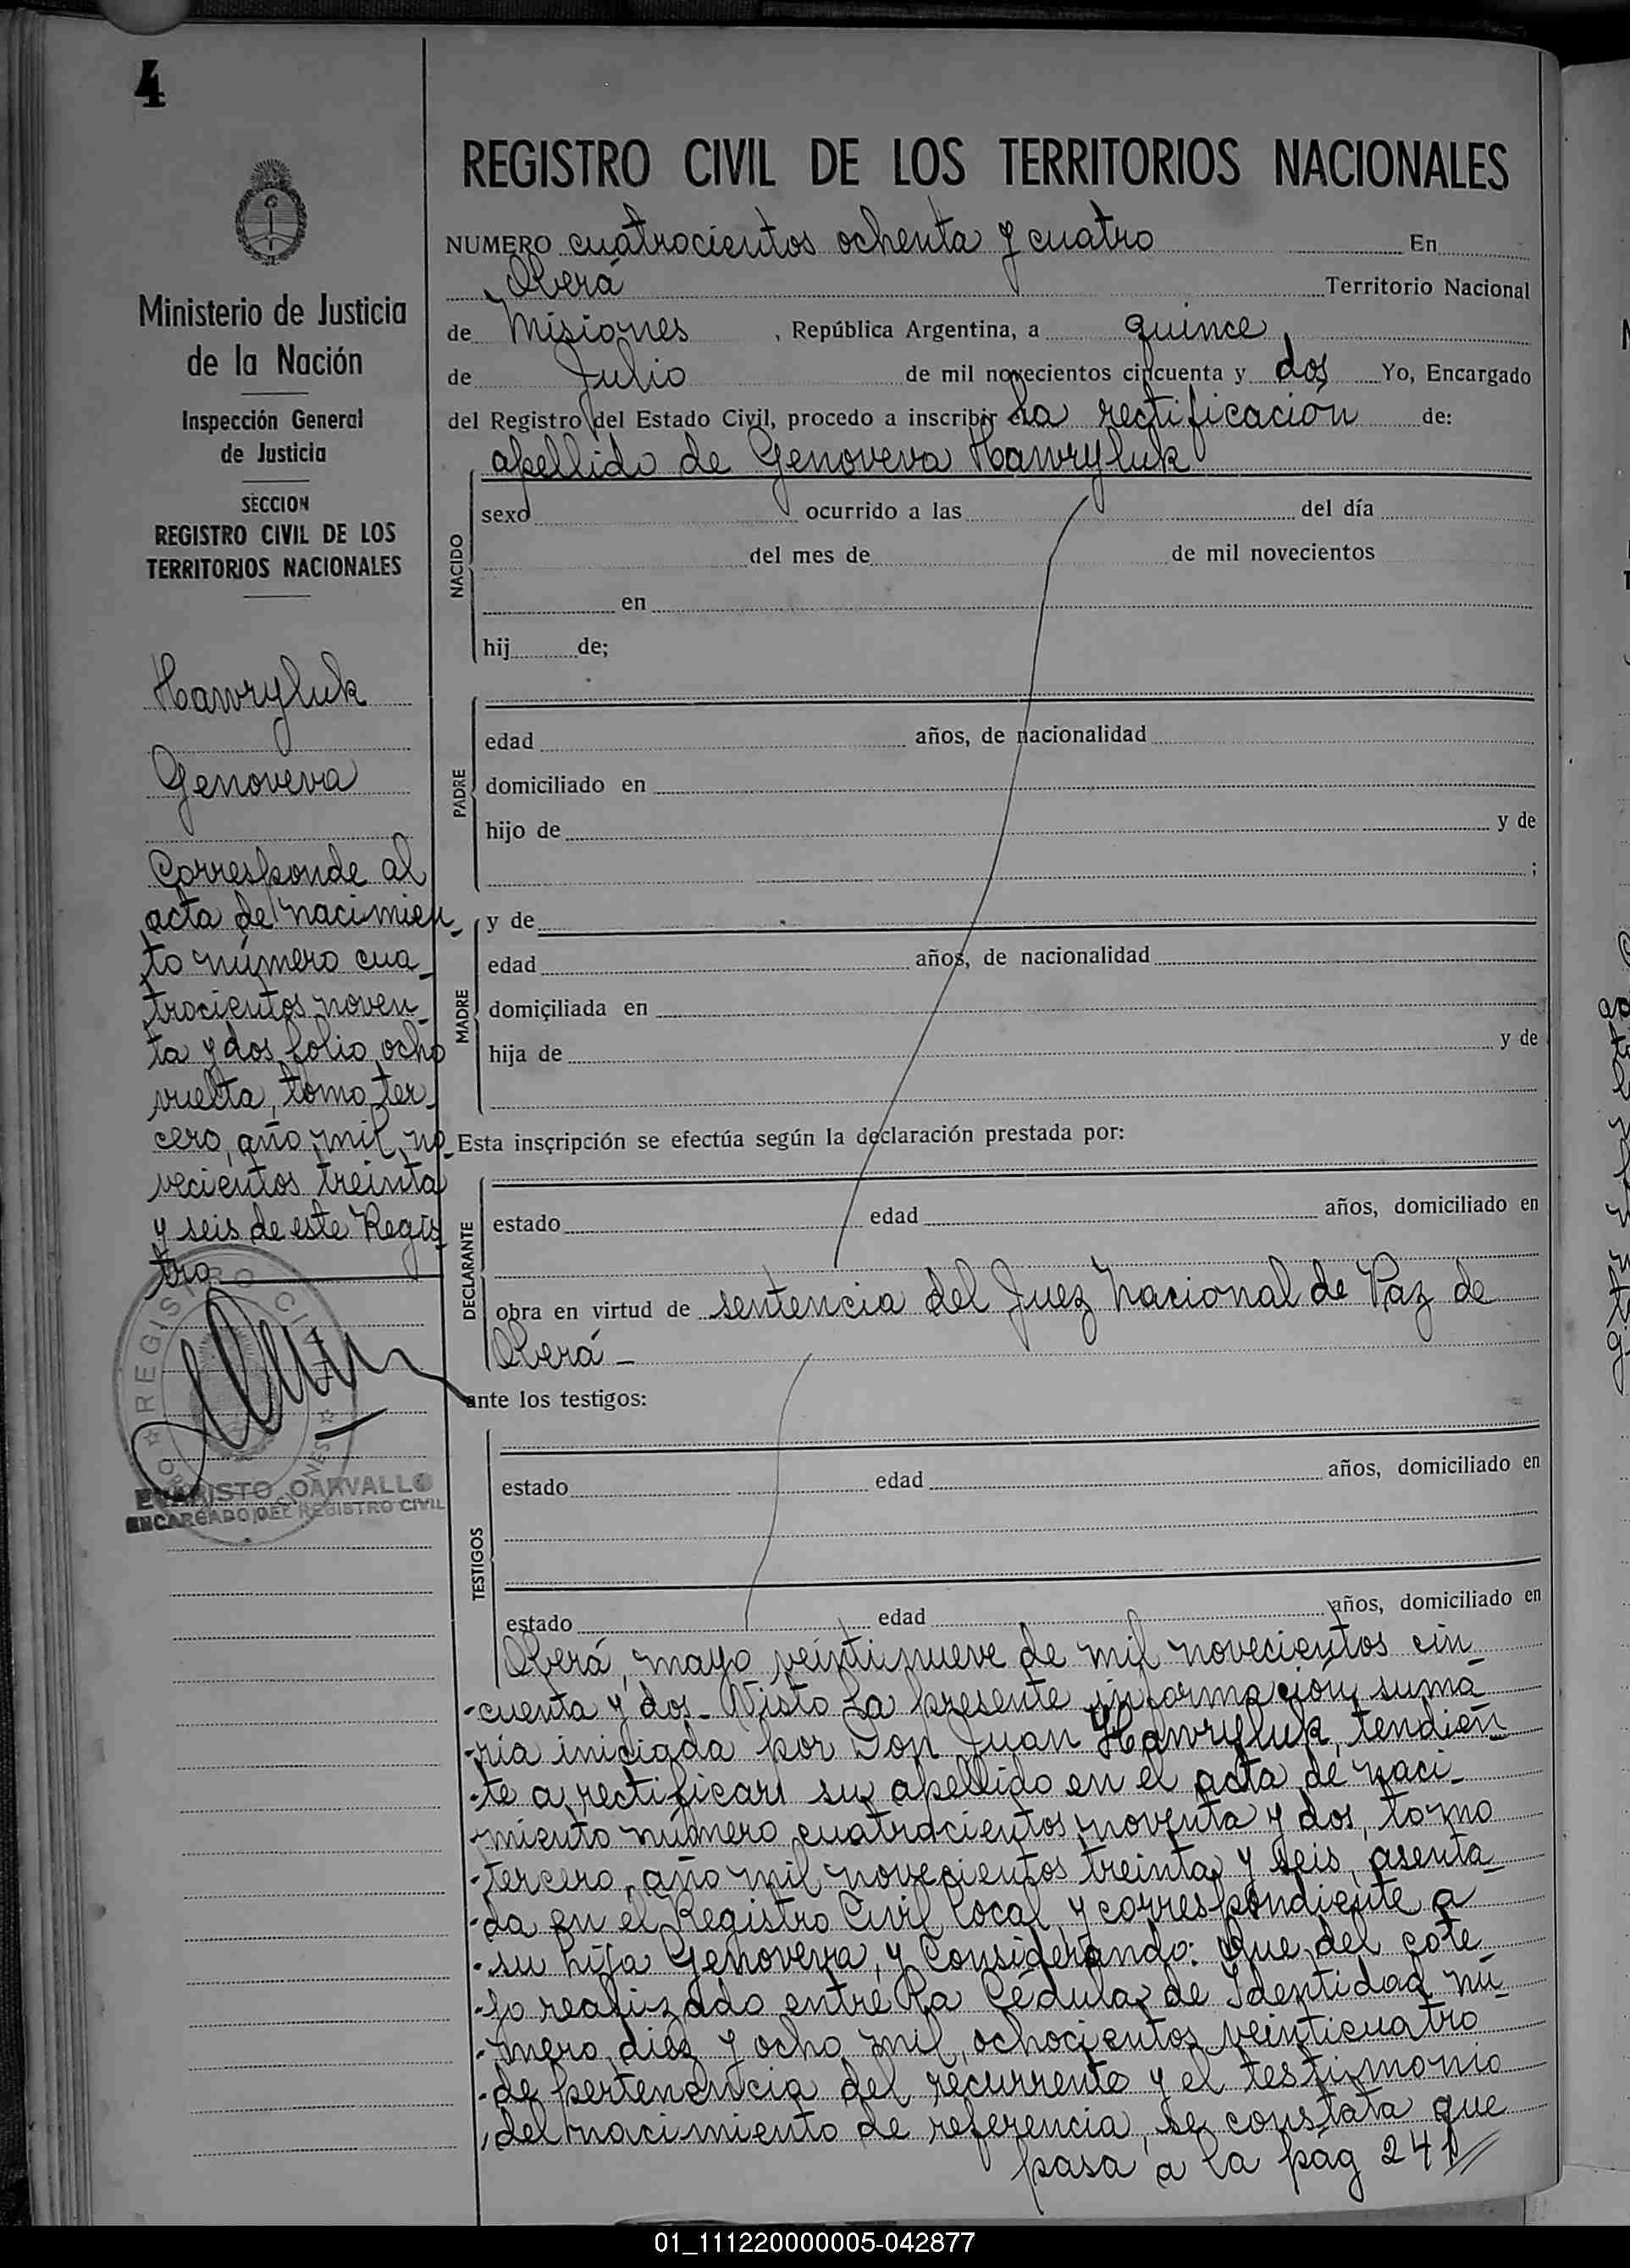 4
Ministerio de Justicia
de la Nación
Inspección General
de Justicia
SECCION
REGISTRO CIVIL DE LOS
TERRITORIOS NACIONALES
Hawryluk
Genoveva
Corresponde al
acta de nacimien-
to número cua-
trocientos noven-
ta y dos folio ocho
vuelta, tomo ter-
cero, año mil no-
vecientos treinta
y seis de este Regis-
tro.
REGISTRO CIVIL
EVARISTO CARVALLO
ENCARGADO DEL REGISTRO CIVIL
REGISTRO CIVIL DE LOS TERRITORIOS NACIONALES
NUMERO cuatrocientos ochenta y cuatro En
Oberá Territorio Nacional
de Misiones, República Argentina, a quince
de Julio de mil novecientos cincuenta y dos Yo, Encargado
del Registro del Estado Civil, procedo a inscribir la rectificación de:
apellido de Genoveva Hawryluk
NACIDO
sexo ocurrido a las del día
del mes de de mil novecientos
en
hij de;
PADRE
edad años, de nacionalidad
domiciliado en
hijo de y de
;
MADRE
y de
edad años, de nacionalidad
domiciliada en
hija de y de
Esta inscripción se efectúa según la declaración prestada por:
DECLARANTE
estado edad años, domiciliado en
obra en virtud de sentencia del Juez Nacional de Paz de
Oberá -
ante los testigos:
TESTIGOS
estado edad años, domiciliado en
estado edad años, domiciliado en
Oberá, mayo veintinueve de mil novecientos cin-
-cuenta y dos.- Visto la presente información suma-
-ria iniciada por Don Juan Hawryluk, tendien-
-te a rectificar su apellido en el acta de naci-
-miento número cuatrocientos noventa y dos, tomo
-tercero, año mil novecientos treinta y seis, asenta-
-da en el Registro Civil local y correspondiente a
-su hija Genoveva, y Considerando: Que del cote-
-jo realizado entre la Cédula de Identidad nú-
-mero diez y ocho mil, ochocientos veinticuatro
-de pertenencia del recurrente y el testimonio
del nacimiento de referencia, se constata que
pasa a la pág 241//
01_111220000005-042877